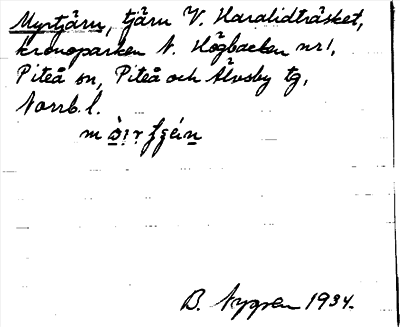 Myrtjärn, tjärn V. Haralidträsket,
kronoparken N. Högbacken nr 1,
Piteå sn, Piteå och Älvsby tg,
Norrb. l.
B. Nygren 1934.